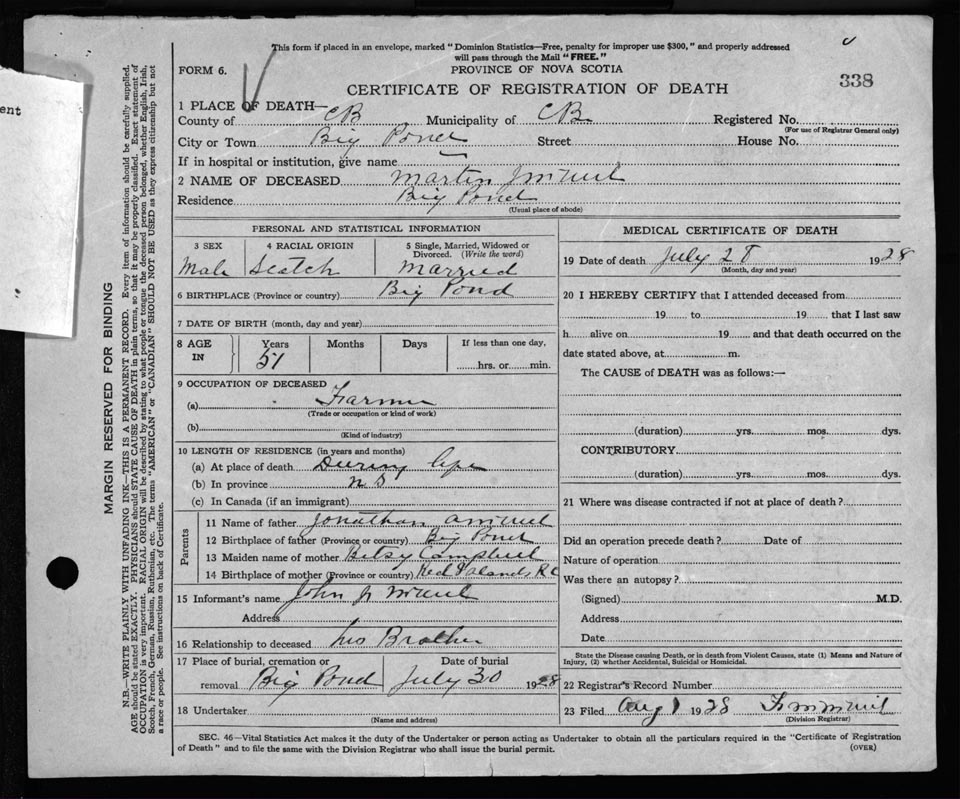 This form if placed in an envelope, marked "Dominion Statistics—Free, penalty for improper use $300," and properly addressed
will pass through the Mail "FREE."
FORM 6.
PROVINCE OF NOVA SCOTIA
CERTIFICATE OF REGISTRATION OF DEATH
338
ent
1 PLACE OF DEATH—
County of CB Municipality of CB Registered No.
(For use of Registrar General only)
City or Town Big Pond Street House No.
If in hospital or institution, give name
2 NAME OF DECEASED Martin
Residence Big Pond
(Usual place of abode)
PERSONAL AND STATISTICAL INFORMATION
3 SEX 4 RACIAL ORIGIN 5 Single, Married, Widowed or Divorced. (Write the word)
Male Scotch Married
6 BIRTHPLACE (Province or country) Big Pond
7 DATE OF BIRTH (month, day and year)
8 AGE IN Years Months Days If less than one day,
51 hrs. or min.
9 OCCUPATION OF DECEASED
(a) Farmer
(Trade or occupation or kind of work)
(b)
(Kind of industry)
10 LENGTH OF RESIDENCE (in years and months)
(a) At place of death During life
(b) In province N S
(c) In Canada (if an immigrant)
Parents
11 Name of father Jonathan
12 Birthplace of father (Province or country) Big Pond
13 Maiden name of mother Betsy Campbell
14 Birthplace of mother (Province or country) Red Islands, R.C
15 Informant's name John
Address
16 Relationship to deceased his Brother
17 Place of burial, cremation or removal Big Pond Date of burial July 30 1928
18 Undertaker
(Name and address)
MEDICAL CERTIFICATE OF DEATH
19 Date of death July 28 1928
(Month, day and year)
20 I HEREBY CERTIFY that I attended deceased from
19 to 19 that I last saw
h alive on 19 and that death occurred on the
date stated above, at m.
The CAUSE of DEATH was as follows:—
(duration) yrs. mos. dys.
CONTRIBUTORY
(duration) yrs. mos. dys.
21 Where was disease contracted if not at place of death?
Did an operation precede death? Date of
Nature of operation
Was there an autopsy?
(Signed) M.D.
Address
Date
State the Disease causing Death, or in death from Violent Causes, state (1) Means and Nature of
Injury, (2) whether Accidental, Suicidal or Homicidal.
22 Registrar's Record Number
23 Filed Aug 1 1928
(Division Registrar)
SEC. 46—Vital Statistics Act makes it the duty of the Undertaker or person acting as Undertaker to obtain all the particulars required in the "Certificate of Registration
of Death" and to file the same with the Division Registrar who shall issue the burial permit.
(OVER)
MARGIN RESERVED FOR BINDING
N.B.—WRITE PLAINLY WITH UNFADING INK—THIS IS A PERMANENT RECORD. Every item of information should be carefully supplied.
AGE should be stated EXACTLY. PHYSICIANS should STATE CAUSE OF DEATH in plain terms, so that it may be properly classified. Exact statement of
OCCUPATION is very important. RACIAL ORIGIN will be described by stating to what people or tongue the deceased person belonged, whether English, Irish,
Scotch, French, German, Russian, Ruthenian, etc. The terms "AMERICAN" or "CANADIAN" SHOULD NOT BE USED as they express citizenship but not
a race or people. See instructions on back of Certificate.